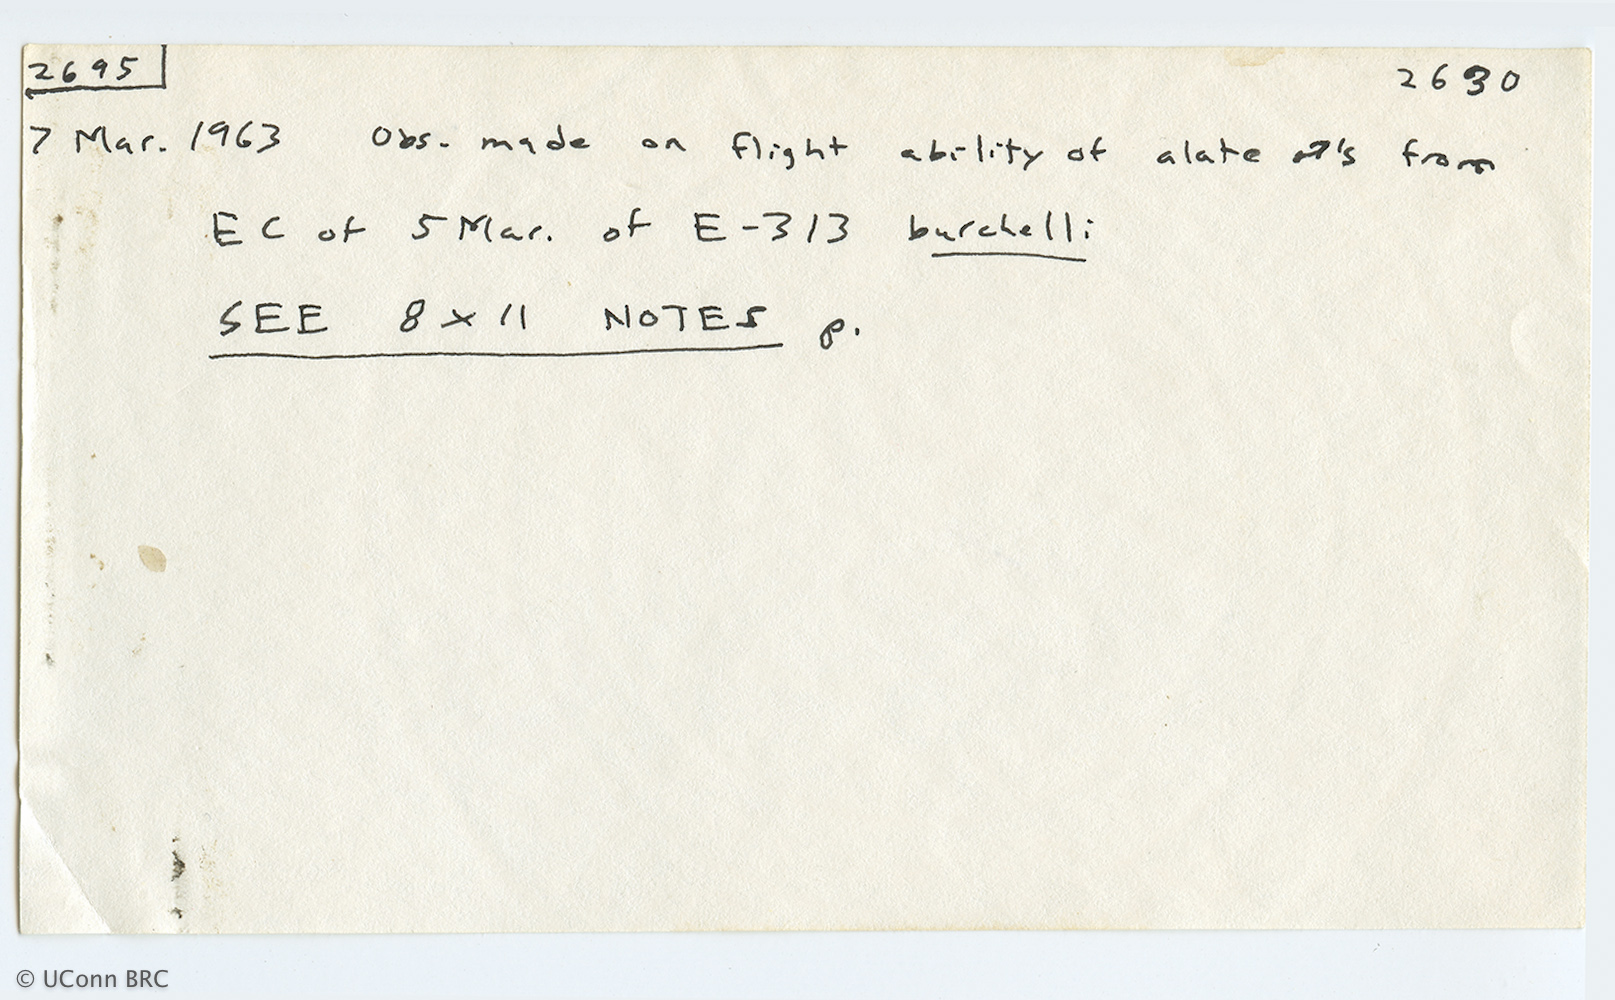 2695
2630
7 Mar. 1963 Obs. made on flight ability of alate ♂'s from
EC of 5 Mar. of E-313 burchelli
SEE 8 x 11 NOTES p.
© UConn BRC